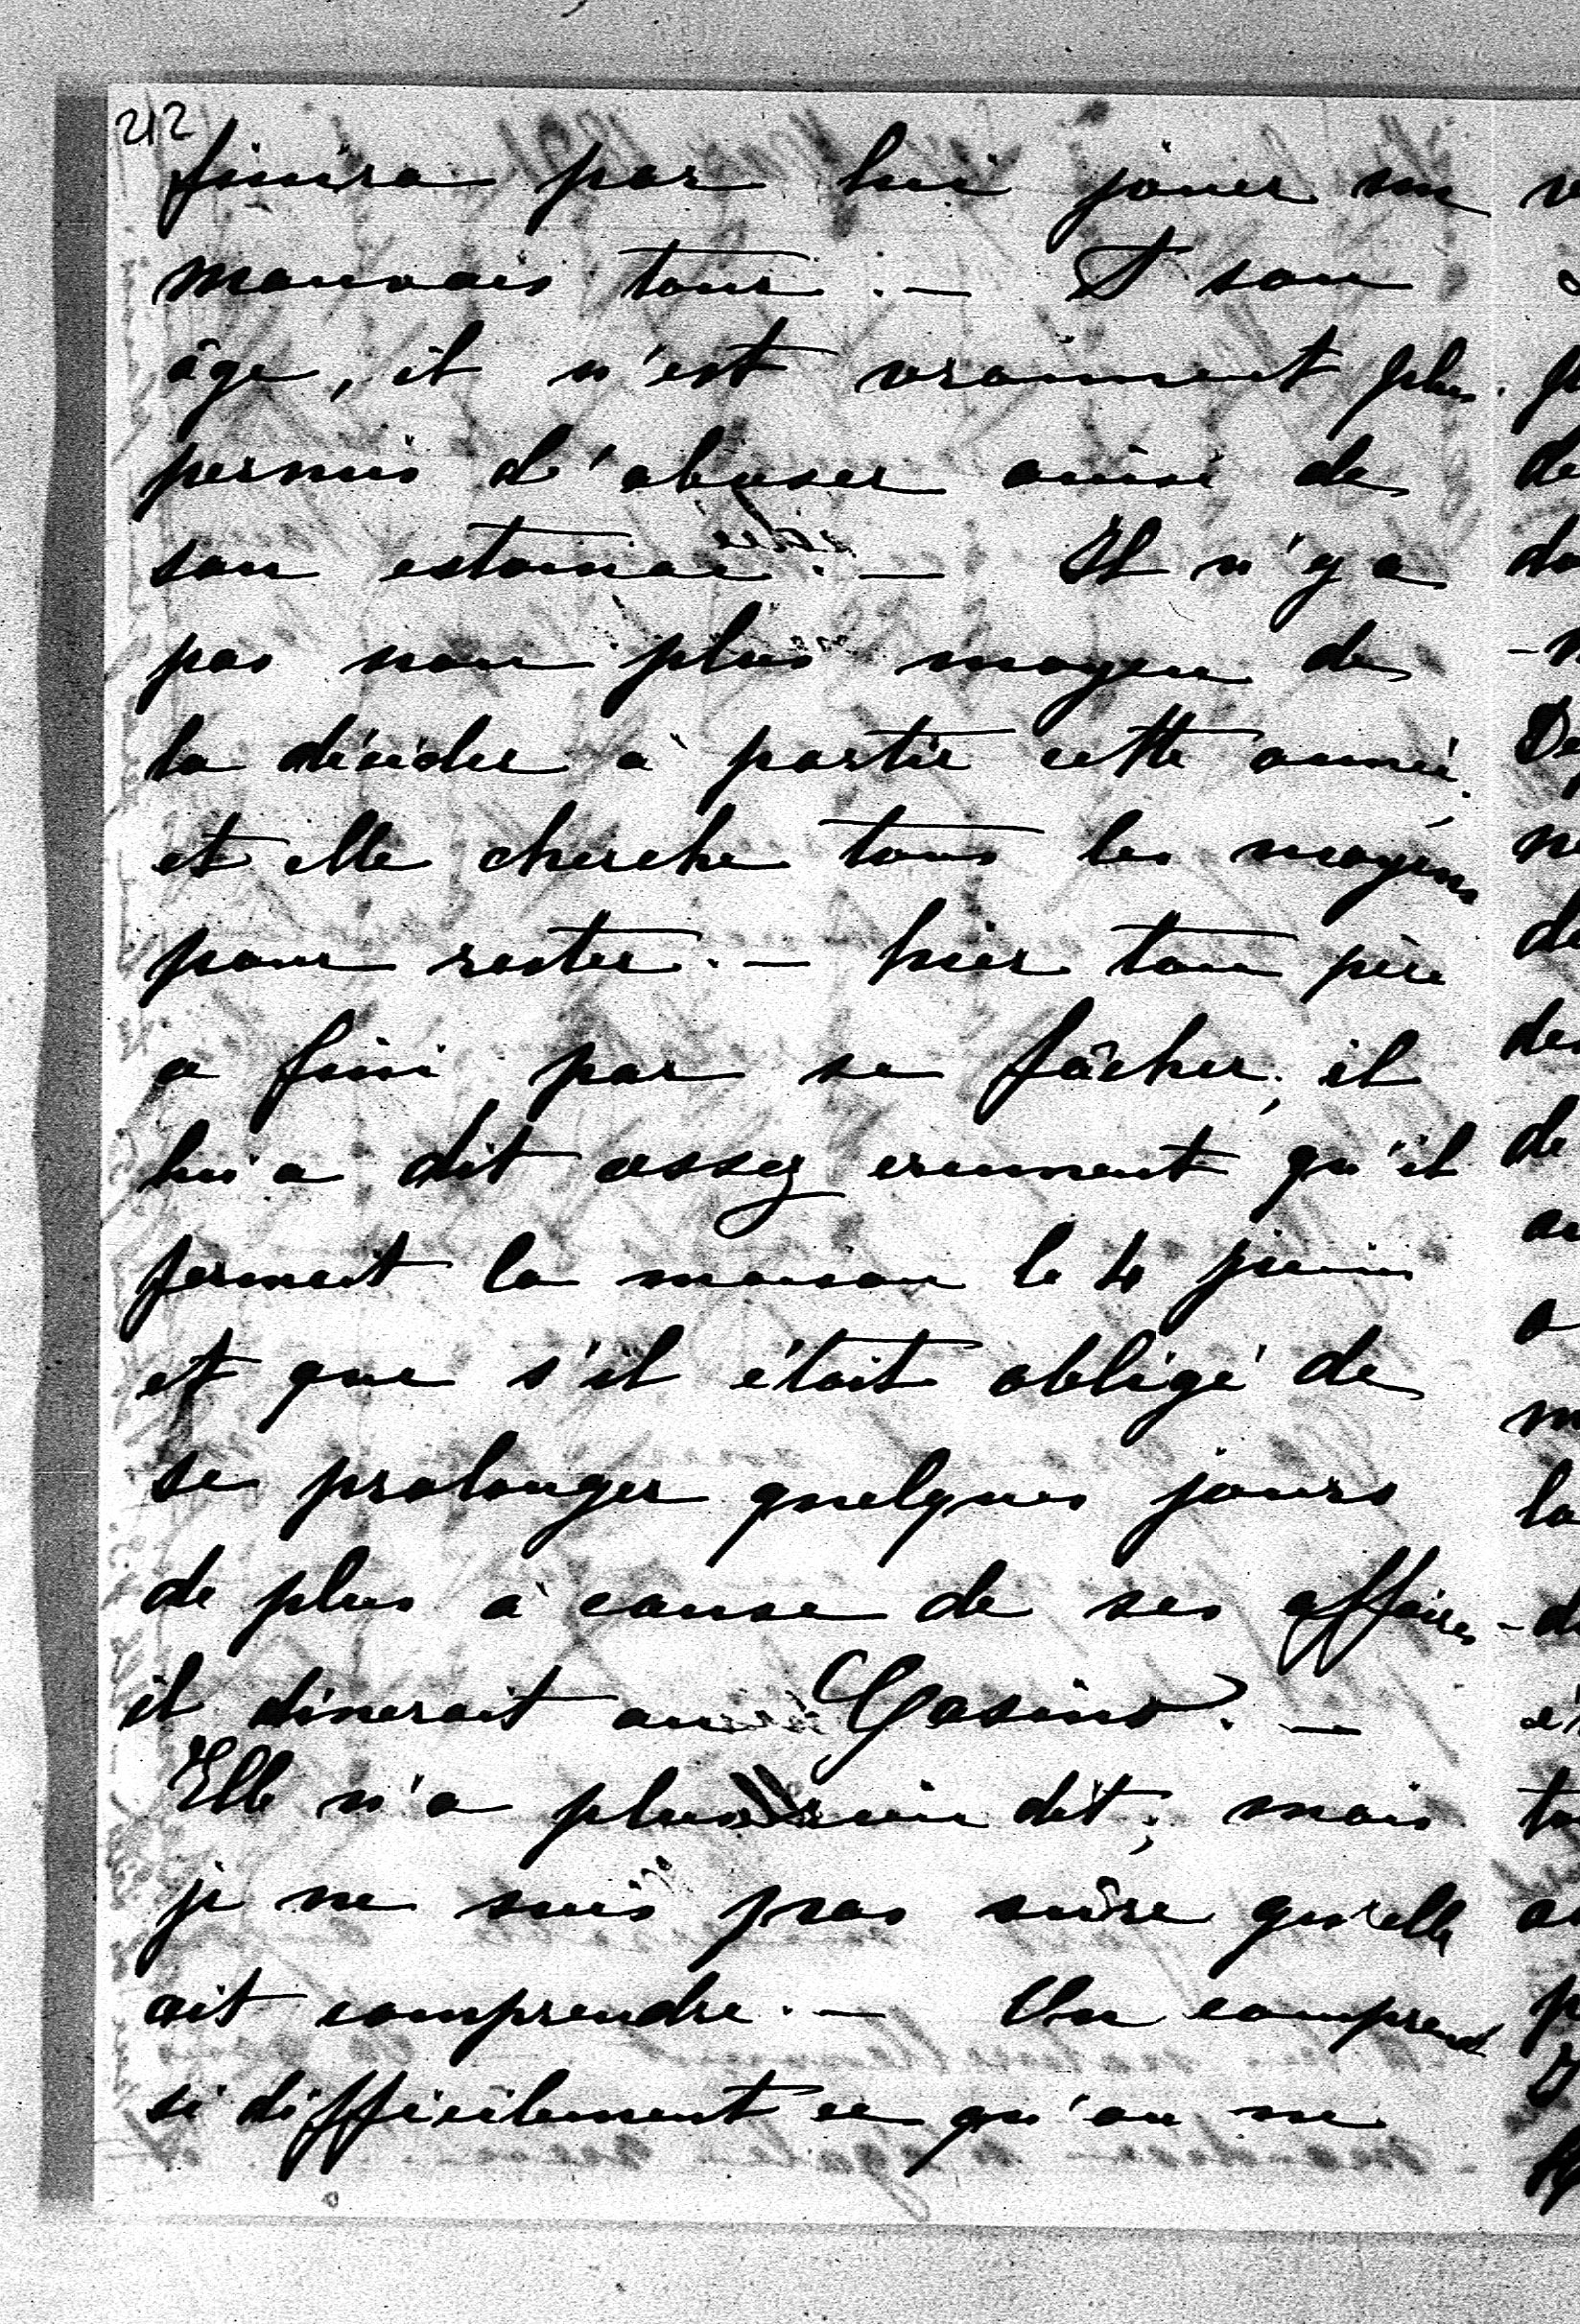 212
finira par lui jouer un
mauvais tour. — A son
âge, il n'est vraiment plus
permis d'abuser ainsi de
son estomac. — Il n'y a
pas non plus moyen de
la décider à partir cette année,
et elle cherche tous les moyens
pour rester. — hier ton père
a fini par se fâcher, il
lui a dit assez crument qu'il
fermait la maison le 4 juin
et que s'il était obligé de
se prolonger quelques jours
de plus à cause de ses affaires
il dinerait au Casino. —
Elle n'a plus rien dit; mais
je ne suis pas sûre qu'elle
ait comprendre. — On comprend
si difficilement ce qu'on ne